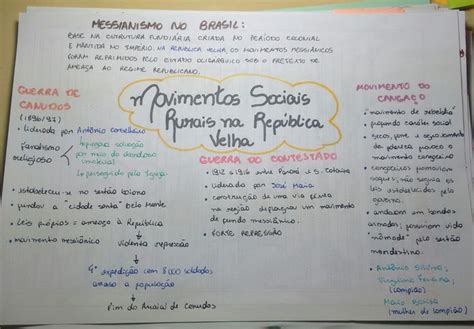 MESSIANISMO NO BRASIL:
BASE NA ESTRUTURA FUNDIÁRIA CRIADA NO PERÍODO COLONIAL
E MANTIDA NO IMPÉRIO. NA REPÚBLICA VELHA, OS MOVIMENTOS MESSIÂNICOS
FORAM REPRIMIDOS PELO ESTADO OLIGÁRQUICO SOB O PRETEXTO DE
AMEAÇA AO REGIME REPUBLICANO.
Movimentos Sociais
Rurais na República
Velha
GUERRA DE
CANUDOS
(1896/97)
• liderada por Antônio Conselheiro
fanatismo
religioso
pregava salvação
por meio do abandono
material
perseguido pela Igreja
• estabeleceu-se no sertão baiano
• fundou a "cidade santa" Belo Monte
• leis próprias = ameaça à República
• movimento messiânico
violenta repressão
4ª expedição com 8000 soldados
arrasa a população
Fim do Arraial de Canudos
GUERRA DO CONTESTADO
• 1912 a 1916 entre Paraná e S. Catarina
• liderada por José Maria
• construção de uma via férrea
na região deflagrou um movimento
de fundo messiânico.
• FORTE REPRESSÃO
MOVIMENTO DO
CANGAÇO
• "movimento de rebeldia"
segundo caráter social
• seca, fome e agravamento
da pobreza
movimento cangaceiro
• cangaceiros promoviam
saques, não seguiam as
leis estabelecidas pelo
governo.
• andavam em bandos
armados; possuíam vida
"nômade" pelo sertão
nordestino.
• Antônio Silvino;
Virgulino Ferreira;
(Lampião)
Maria Bonita
(mulher de Lampião)